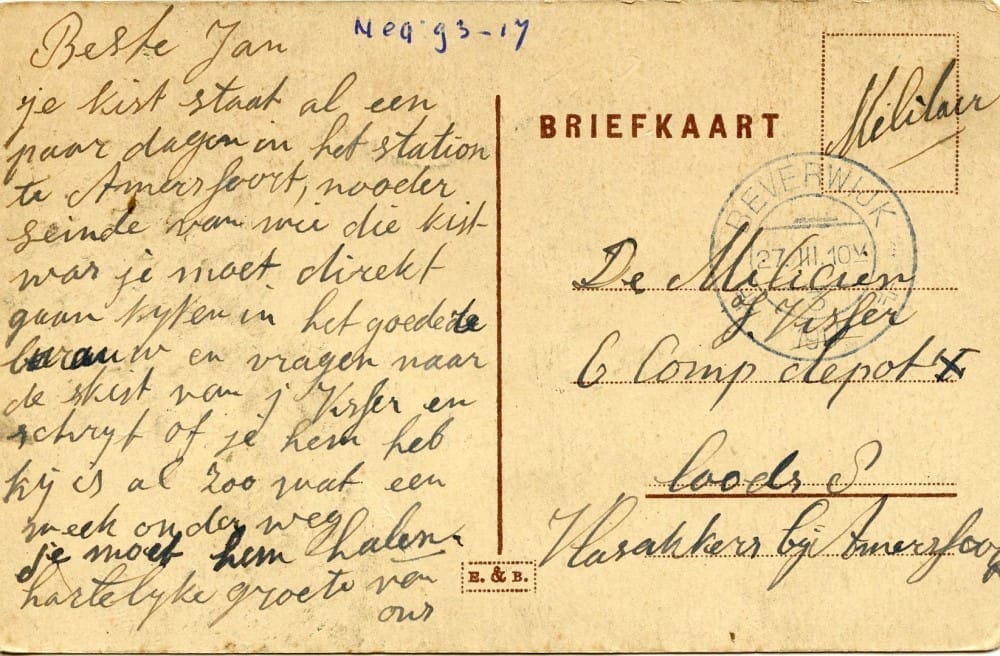 Neg 93-17
Beste Jan
je kist staat al een
paar dagen in het station
te Amersfoort, nooder
seinde van wie die kist
war je moet direkt
gaan kyken in het goedede
burauw en vragen naar
de skist van j Visser en
schryt of je hem heb
hij is al zoo wat een
week onder weg
je moet hem halen
hartelyke groete van
ons
BRIEFKAART
Militair
BEVERWIJK
27.III.10
De Milicien
J. Visser
6 Comp depot
loods S
Vlasakkers bij Amersfoor
E. & B.